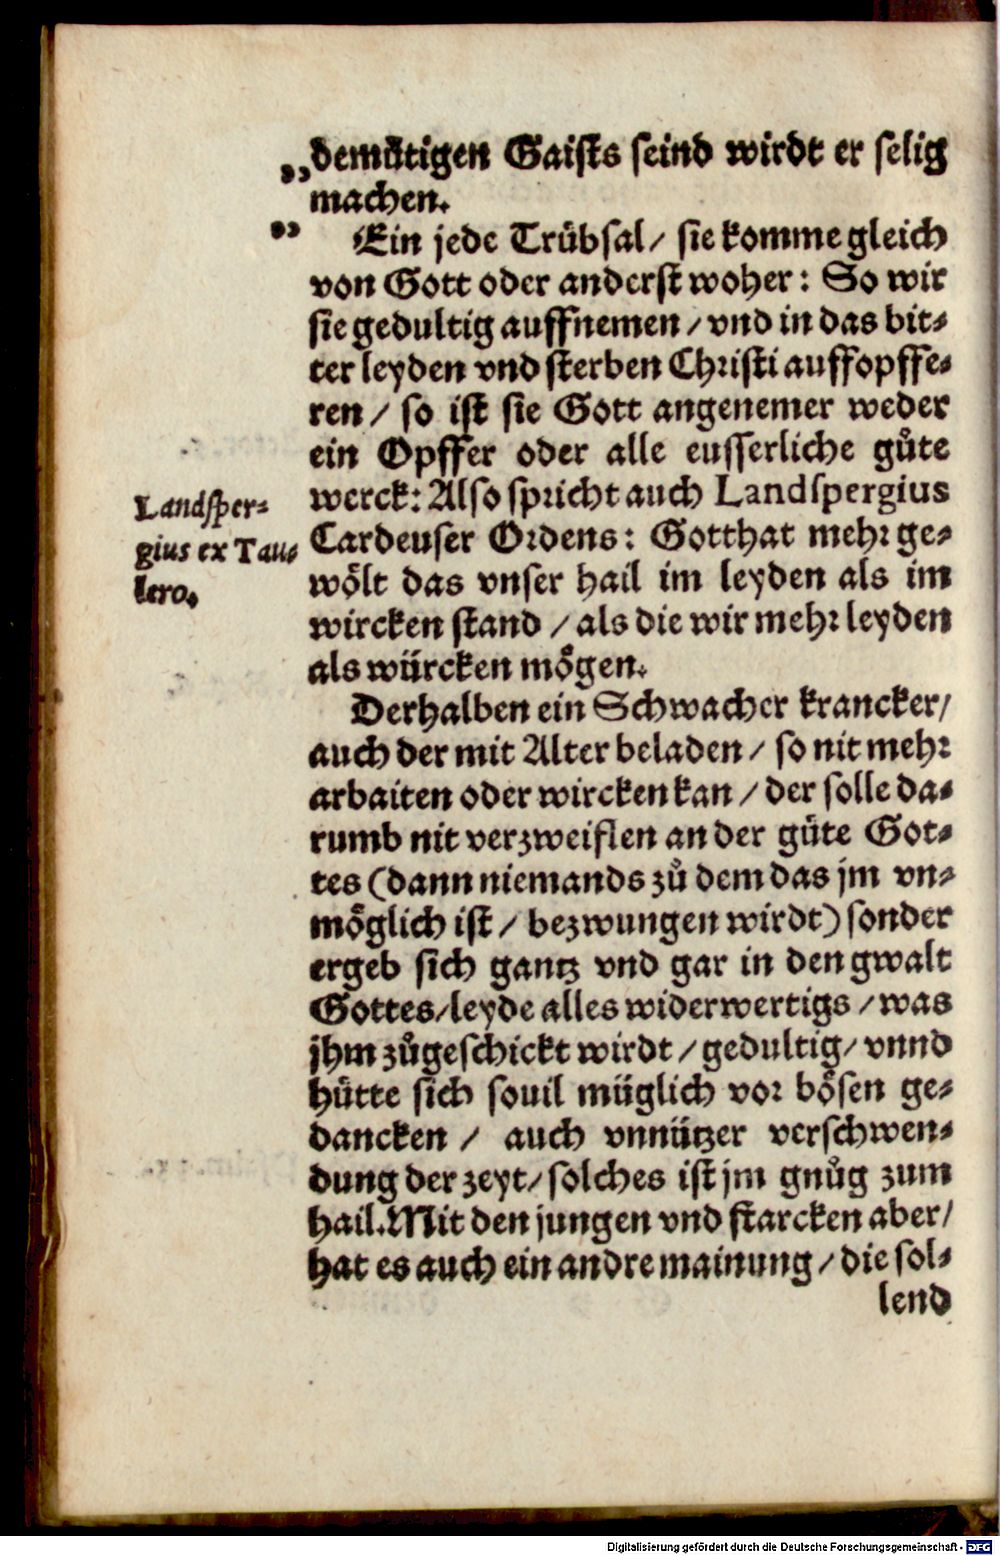 „demütigen Gaists seind wirdt er selig
„ machen.
Ein jede Trübsal / sie komme gleich
von Gott oder anderst woher: So wir
sie gedultig auffnemen / vnd in das bit-
ter leyden vnd sterben Christi auffopffe-
ren / so ist sie Gott angenemer weder
ein Opffer oder alle eusserliche gůte
werck: Also spricht auch Landspergius
Cardeuser Ordens: Gott hat mehr ge-
wölt das vnser hail im leyden als im
wircken stand / als die wir mehr leyden
als würcken mögen.
Landsper-
gius ex Tau-
lero.
Derhalben ein Schwacher krancker /
auch der mit Alter beladen / so nit mehr
arbaiten oder wircken kan / der solle da-
rumb nit verzweiflen an der güte Got-
tes (dann niemands zů dem das jm vn-
möglich ist / bezwungen wirdt) sonder
ergeb sich gantz vnd gar in den gwalt
Gottes / leyde alles widerwertigs / was
jhm zůgeschickt wirdt / gedultig / vnnd
hütte sich souil müglich vor bösen ge-
dancken / auch vnnützer verschwen-
dung der zeyt / solches ist jm gnůg zum
hail. Mit den jungen vnd starcken aber /
hat es auch ein andre mainung / die sol-
lend
Digitalisierung gefördert durch die Deutsche Forschungsgemeinschaft - DFG